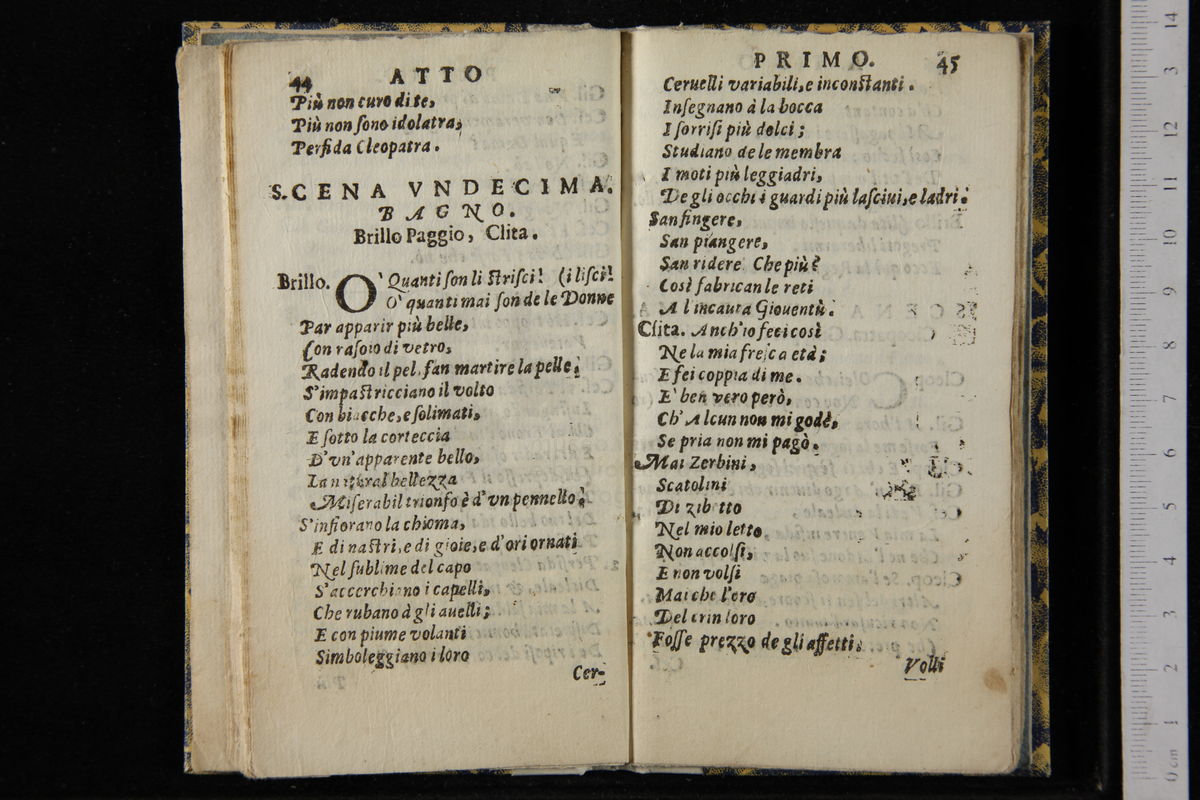 44 ATTO
Più non curo di te,
Più non ſono idolatra,
Perfida Cleopatra.
SCENA VNDECIMA.
BAGNO.
Brillo Paggio, Clita.
Brillo. O' Quanti ſon li ſtriſci! (i liſci!
O' quanti mai ſon de le Donne
Par apparir più belle,
Con raſoio di vetro,
Radendo il pel, fan martire la pelle!
S'impaſtricciano il volto
Con biacche, e ſolimati,
E ſotto la corteccia
D'vn'apparente bello,
La natural bellezza
Miſerabil trionfo è d'vn pennello!
S'infiorano la chioma,
E di naſtri, e di gioie, e d'ori ornati
Nel ſublime del capo
S'accerchiano i capelli,
Che rubano à gli auelli;
E con piume volanti
Simboleggiano i loro
Cer-
PRIMO. 45
Ceruelli variabili, e inconſtanti.
Inſegnano à la bocca
I ſorriſi più dolci;
Studiano de le membra
I moti più leggiadri,
De gli occhi i guardi più laſciui, e ladri!
San fingere,
San piangere,
San ridere Che più?
Così fabrican le reti
A l'incauta Giouentù.
Clita. Anch'io feci così
Ne la mia freſca età;
E fei coppia di me.
E' ben vero però,
Ch'Alcun non mi godè,
Se pria non mi pagò.
Mai Zerbini,
Scatolini
Di zibetto
Nel mio letto
Non accolſi,
E non volſi
Mai che l'oro
Del crin loro
Foſſe prezzo de gli affetti.
Volli